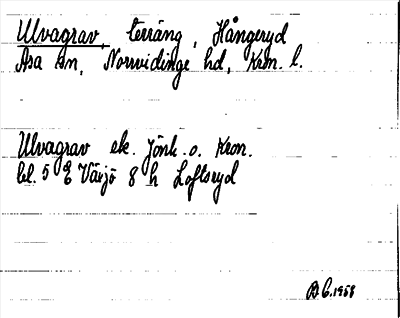 Ulvagrav, terräng, Hångeryd
Asa sn, Norrvidinge hd, Kron. l.
Ulvagrav ek. Jönk. o. Kron.
bl. 5 E Växjö 8 h Loftsryd
B.C. 1958